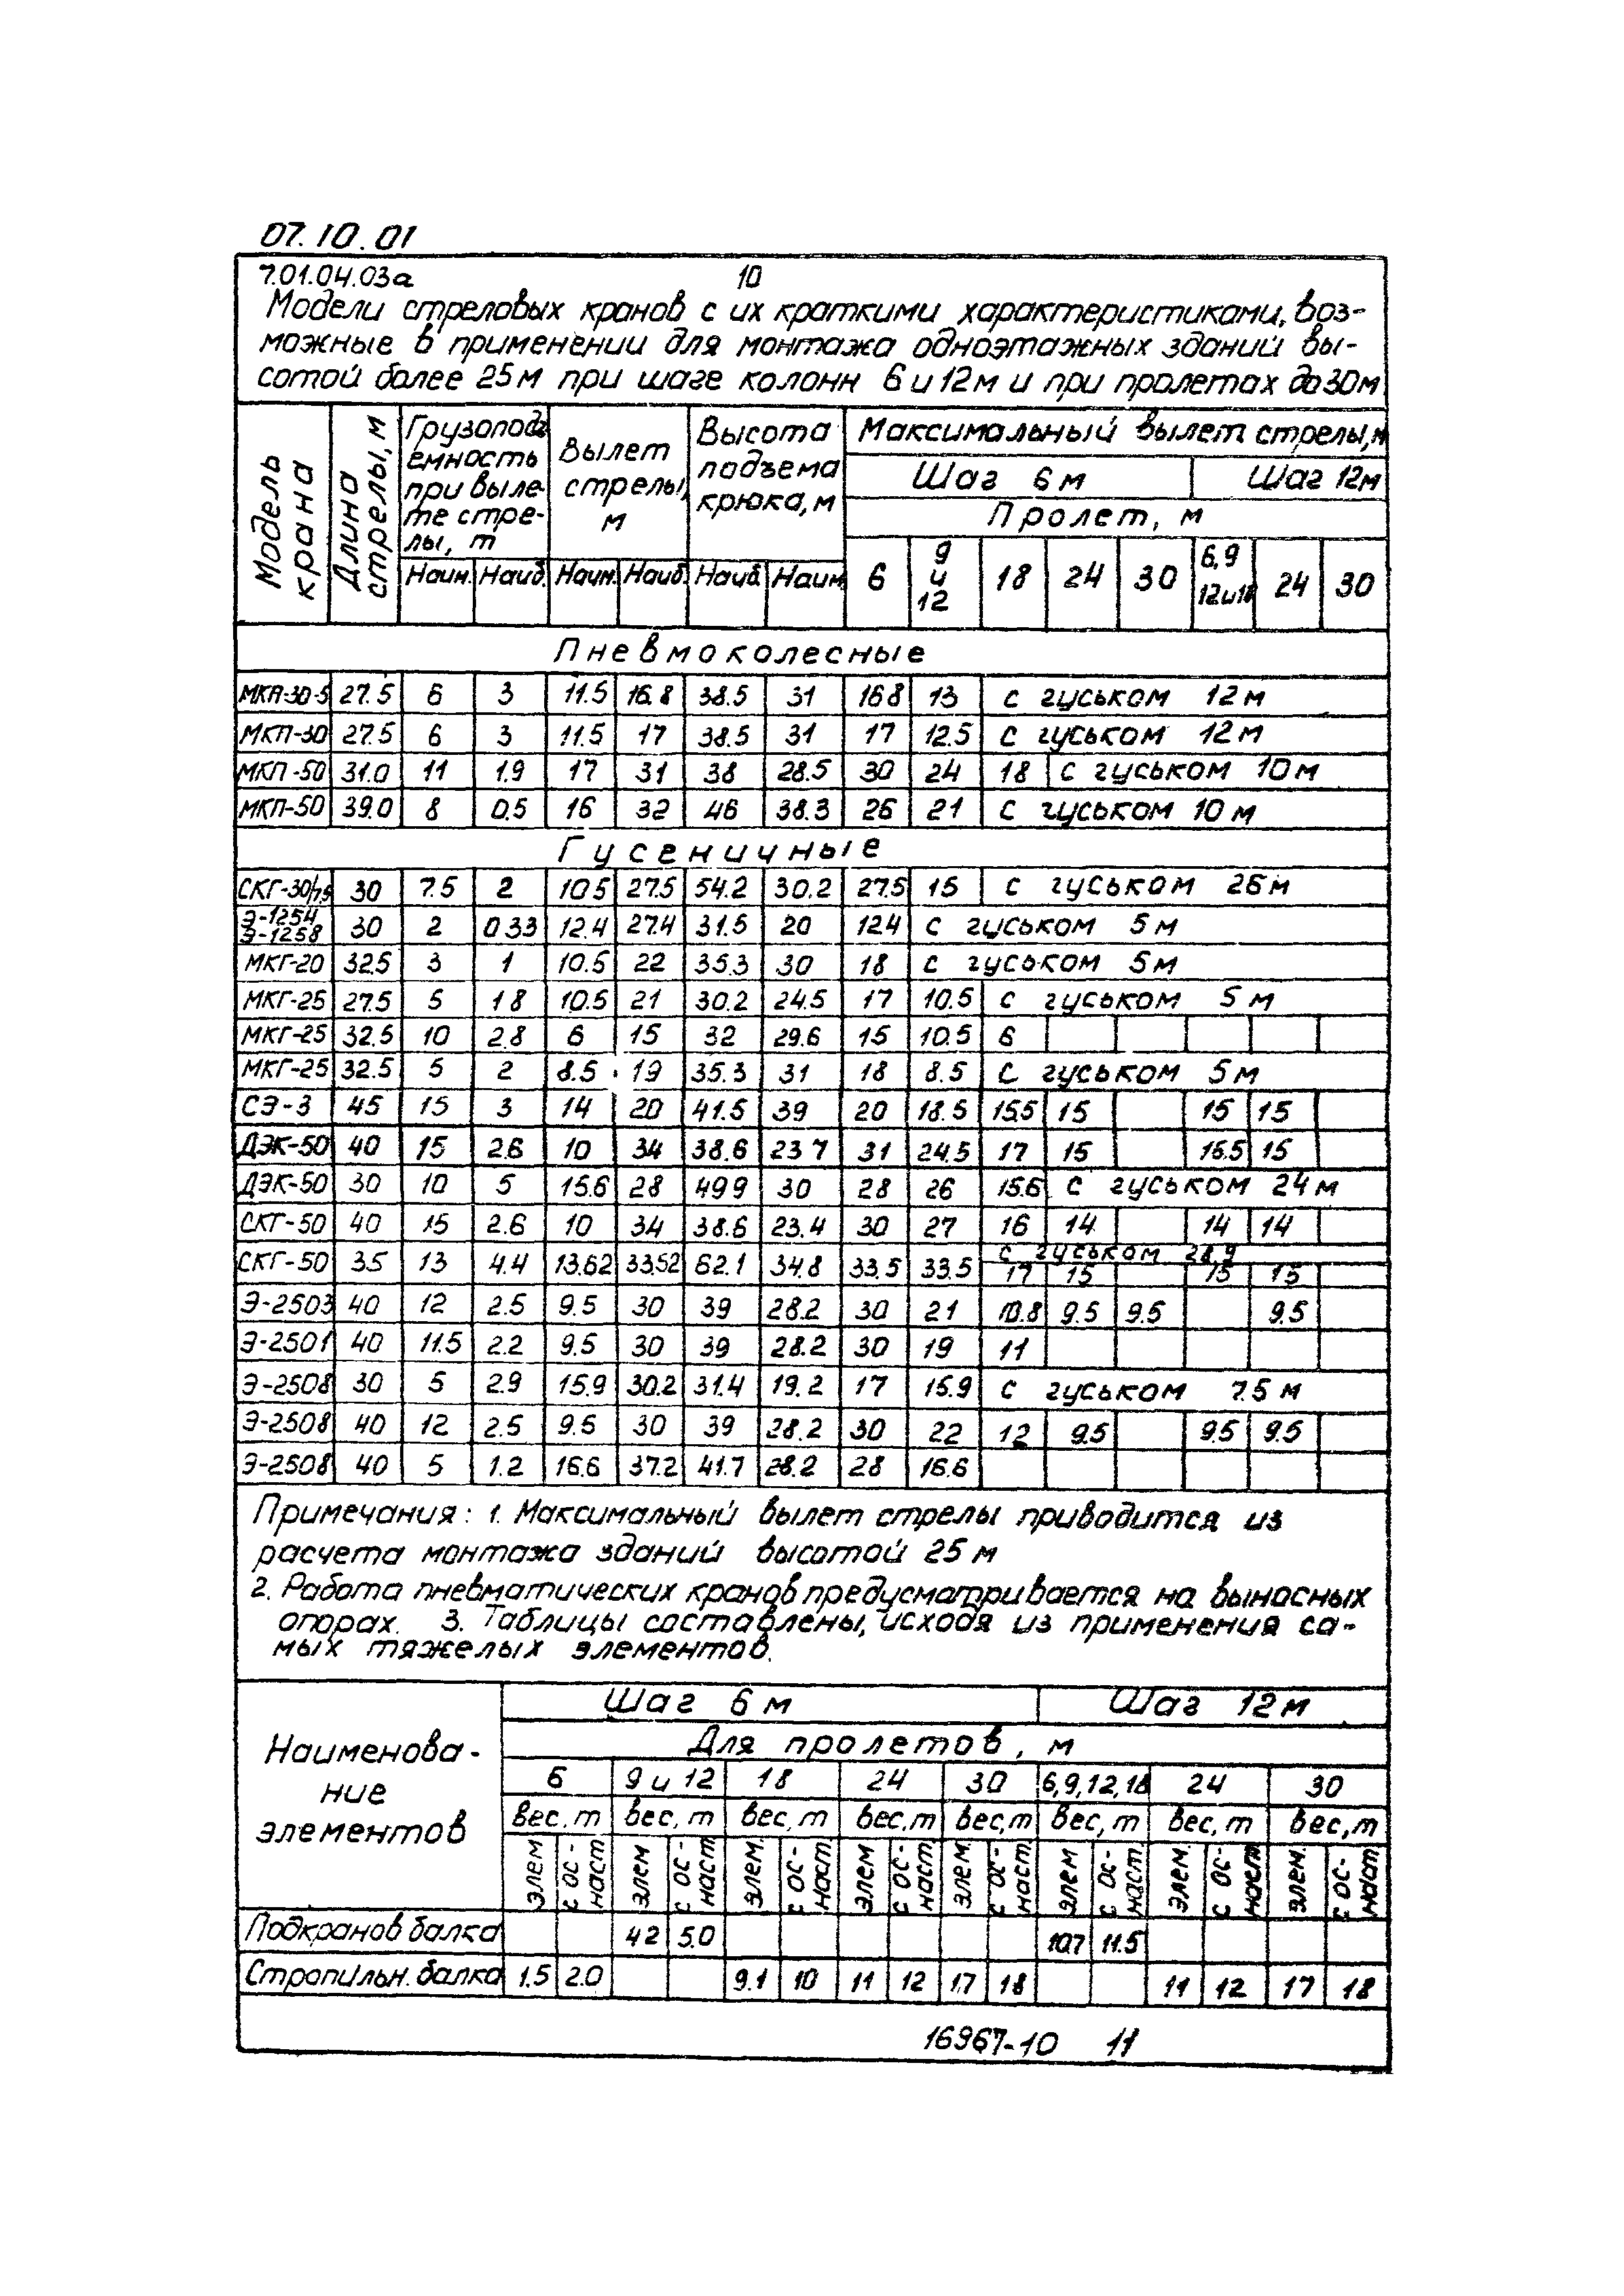 07.10.01
7.01.04.03а 10
Модели стреловых кранов с их краткими характеристиками, воз-
можные в применении для монтажа одноэтажных зданий вы-
сотой более 25м при шаге колонн 6 и 12м и при пролетах до 30м
Модель крана
Длина стрелы, м
Грузоподъ
емность
при выле-
те стре-
лы, т
Вылет
стрелы,
м
Высота
подъема
крюка, м
Максимальный вылет стрелы, м
Шаг 6м Шаг 12м
Пролет, м
Наим. Наиб. Наим. Наиб. Наиб. Наим. 6 9 и 12 18 24 30 6,9 12и18 24 30
Пневмоколесные
МКП-30-5 27.5 6 3 11.5 16.8 38.5 31 168 13 с гуськом 12м
МКП-30 27.5 6 3 11.5 17 38.5 31 17 12.5 с гуськом 12м
МКП-50 31.0 11 1.9 17 31 38 28.5 30 24 18 с гуськом 10м
МКП-50 39.0 8 0.5 16 32 46 38.3 26 21 с гуськом 10м
Гусеничные
СКГ-30/7,5 30 7.5 2 105 27.5 54.2 30.2 27.5 15 с гуськом 26м
Э-1254
Э-1258 30 2 033 12.4 27.4 31.5 20 124 с гуськом 5м
МКГ-20 32.5 3 1 10.5 22 35.3 30 18 с гуськом 5м
МКГ-25 27.5 5 18 10.5 21 30.2 24.5 17 10.5 с гуськом 5м
МКГ-25 32.5 10 2.8 6 15 32 29.6 15 10.5 6
МКГ-25 32.5 5 2 8.5 19 35.3 31 18 8.5 с гуськом 5м
СЭ-3 45 15 3 14 20 41.5 39 20 18.5 15.5 15 15 15
ДЭК-50 40 15 2.6 10 34 38.6 23 7 31 24.5 17 15 16.5 15
ДЭК-50 30 10 5 15.6 28 499 30 28 26 15.6 с гуськом 24м
СКГ-50 40 15 2.6 10 34 38.6 23.4 30 27 16 14 14 14
СКГ-50 35 13 4.4 13.62 33.52 62.1 34.8 33.5 33.5 с гуськом 28,9
17 15 15 15
Э-2503 40 12 2.5 9.5 30 39 28.2 30 21 10.8 9.5 9.5 9.5
Э-2501 40 11.5 2.2 9.5 30 39 28.2 30 19 11
Э-2508 30 5 2.9 15.9 30.2 31.4 19.2 17 15.9 с гуськом 7.5м
Э-2508 40 12 2.5 9.5 30 39 28.2 30 22 12 9.5 9.5 9.5
Э-2508 40 5 1.2 16.6 37.2 41.7 28.2 28 16.6
Примечания: 1. Максимальный вылет стрелы приводится из
расчета монтажа зданий высотой 25м
2. Работа пневматических кранов предусматривается на выносных
опорах. 3. Таблицы составлены, исходя из применения са-
мых тяжелых элементов.
Наименова-
ние
элементов
Шаг 6м Шаг 12м
Для пролетов, м
6 9 и 12 18 24 30 6,9,12,18 24 30
Вес.т вес, т вес, т вес,т вес,т вес, т вес, т вес,т
элем с ос-наст. элем с ос-наст. элем. с ос-наст. элем с ос-наст элем. с ос-наст. элем с ос-наст. элем. с ос-наст элем. с ос-наст.
Подкранов балка 42 5.0 107 11.5
Стропильн. балка 1.5 2.0 9.1 10 11 12 17 18 11 12 17 18
16967-10 11